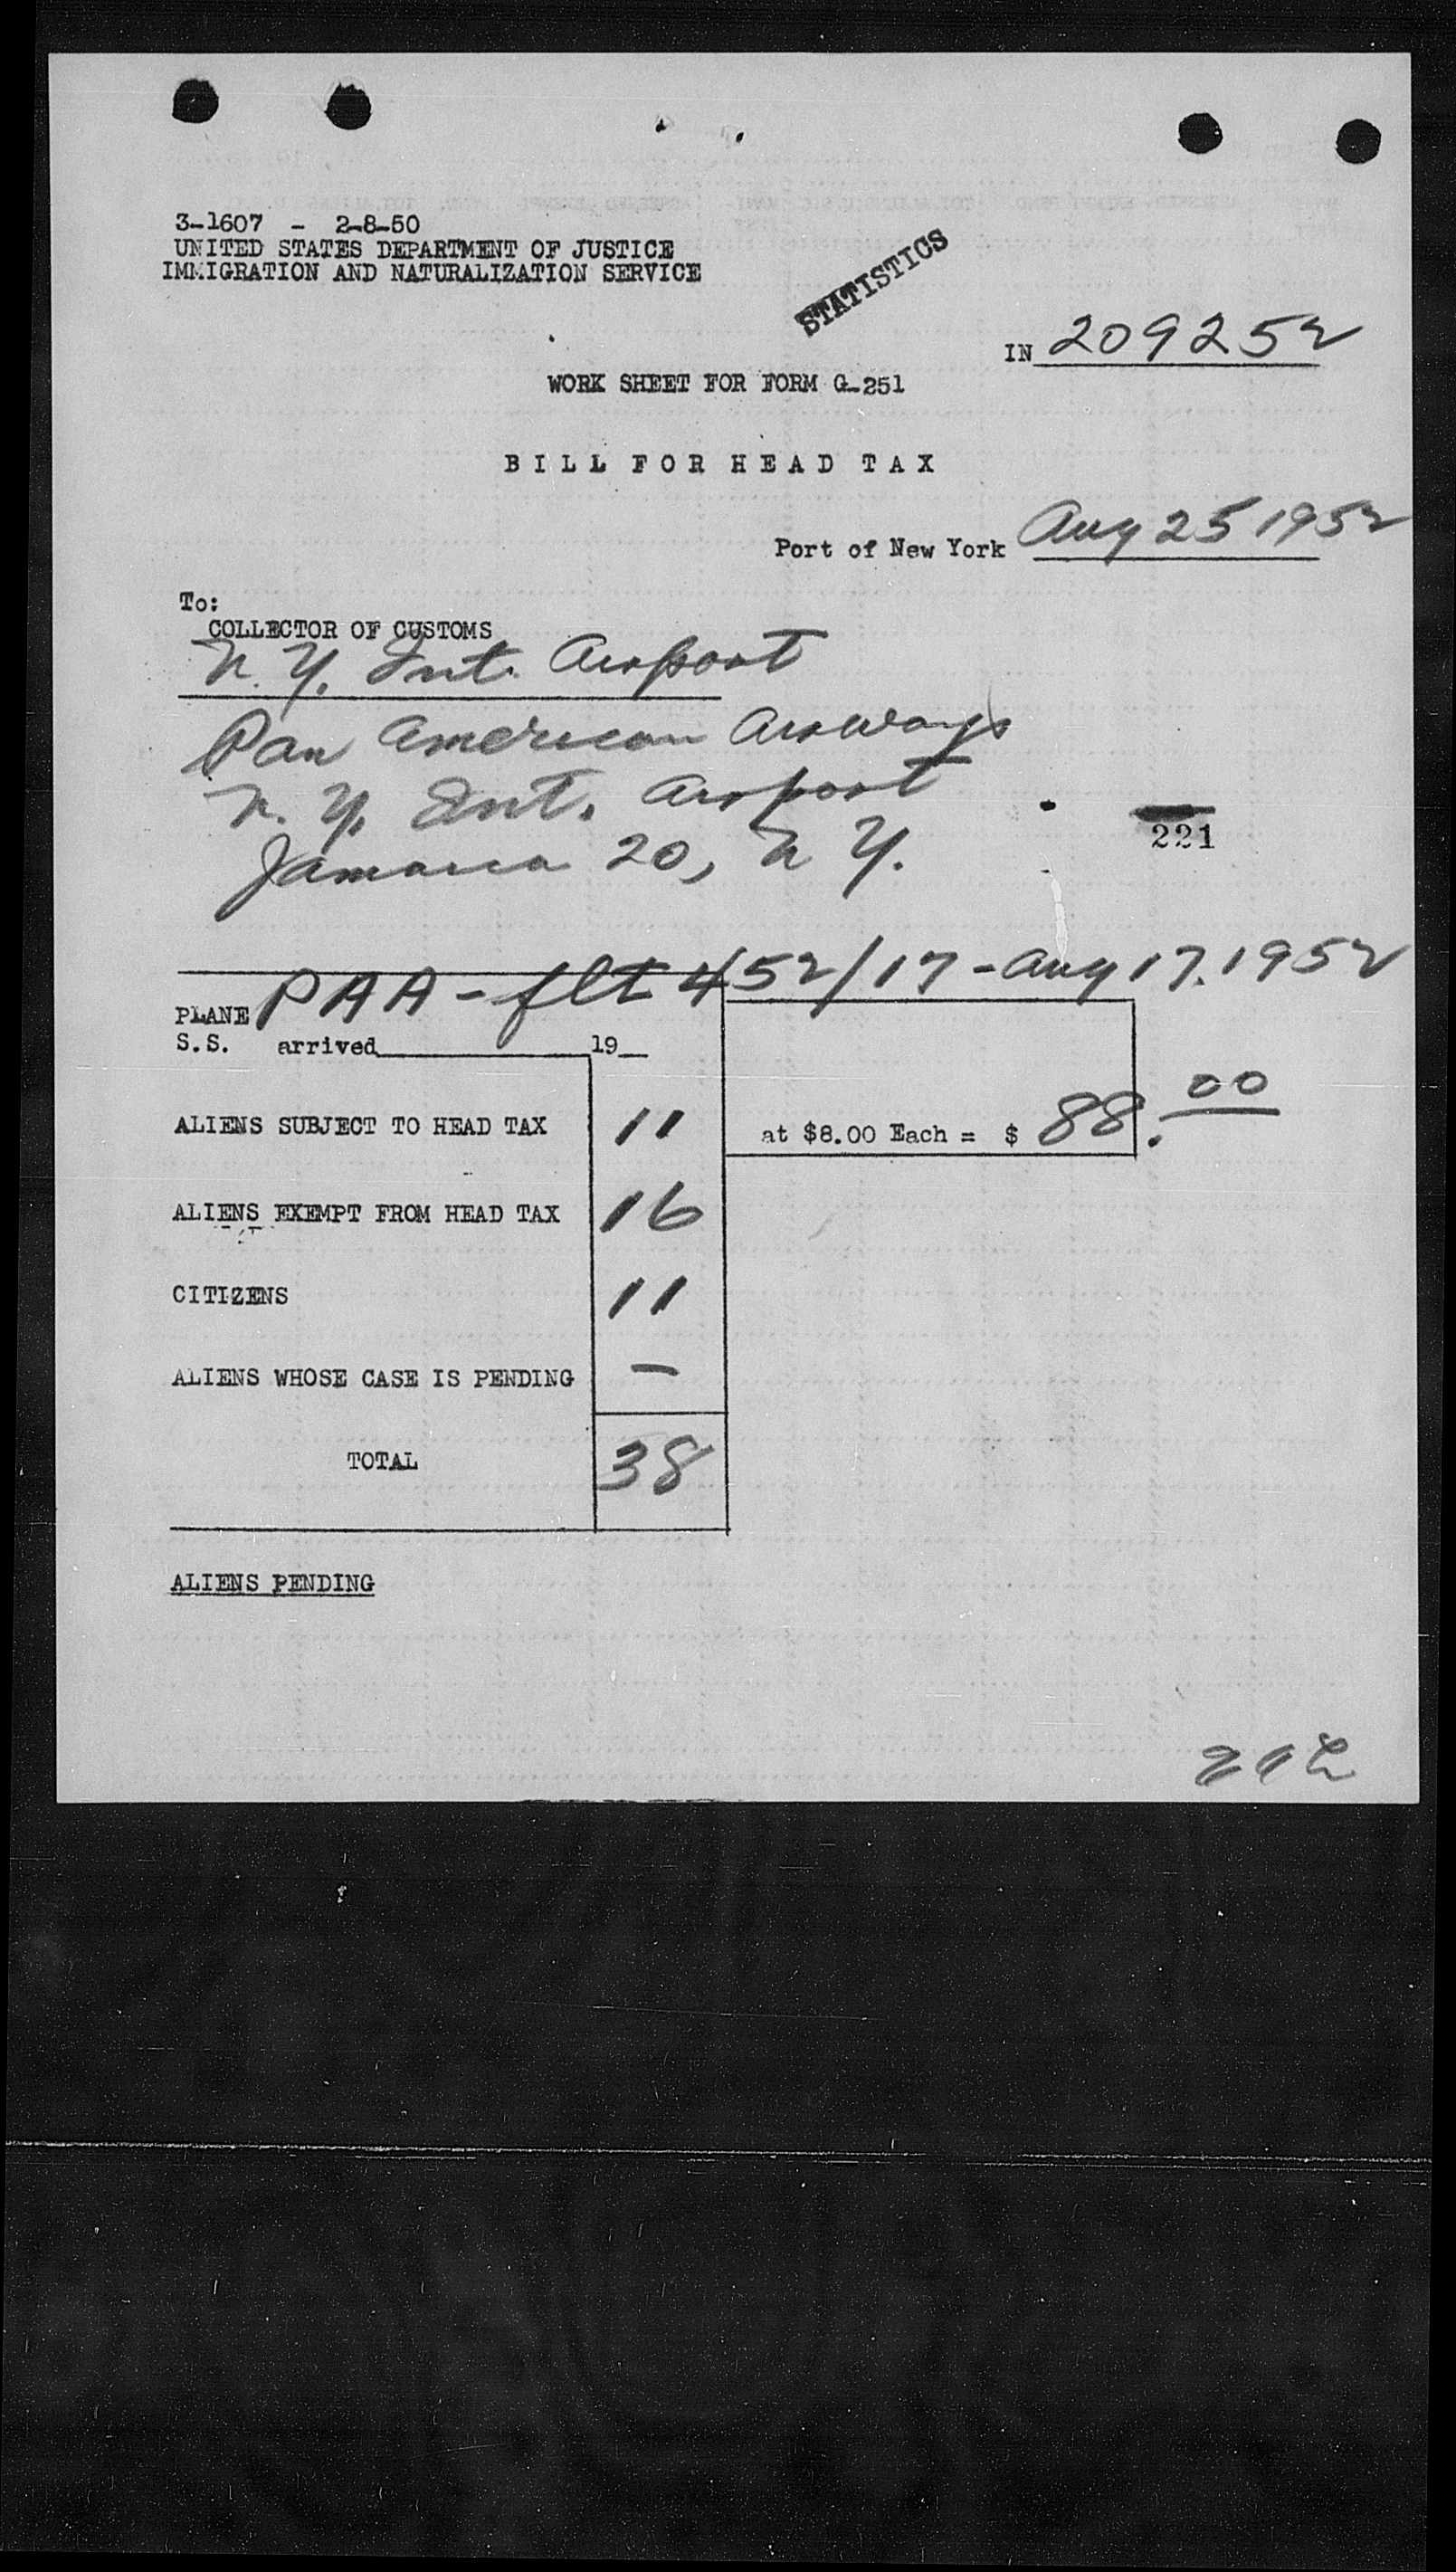 3-1607 - 2-8-50
UNITED STATES DEPARTMENT OF JUSTICE
IMMIGRATION AND NATURALIZATION SERVICE
STATISTICS
IN 209252
WORK SHEET FOR FORM G-251
BILL FOR HEAD TAX
Port of New York Aug 25 1952
To:
COLLECTOR OF CUSTOMS
N. Y. Int. Airport
Pan American Airways
N. Y. Int. Airport
Jamaica 20, N Y.
221
PLANE PAA - flt 452/17 - Aug 17. 1952
S.S. arrived 19
ALIENS SUBJECT TO HEAD TAX 11 at $8.00 Each = $ 88.00
ALIENS EXEMPT FROM HEAD TAX 16
CITIZENS 11
ALIENS WHOSE CASE IS PENDING -
TOTAL 38
ALIENS PENDING